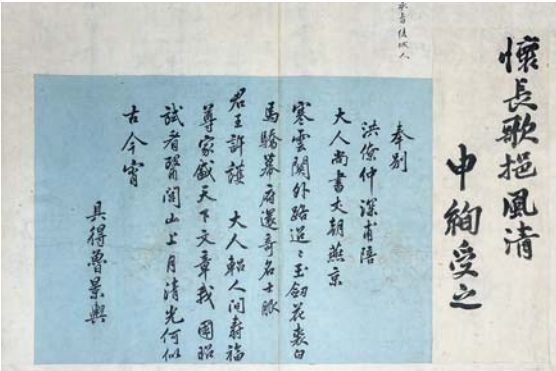 懷長歌挹風清
申絢受之
奉別
洪僚仲深甫陪
大人尚書丈朝燕京
寒雲關外路迢〻玉劒花裘白
馬驕幕府還奇名士脉
君王許護 大人軺人間壽福
尊家盛天下文章我國昭
試看醫閭山上月清光何似
古今宵
具得魯景輿